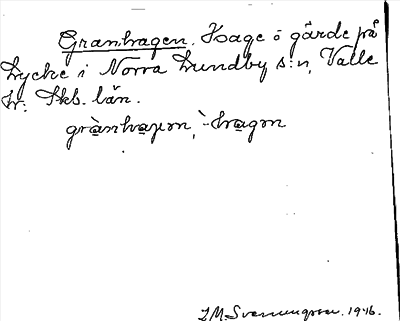 Granhagen. Hage o gärde på
Lycke i Norra Lundby s:n, Valle
hr. Skb. län.
grànhaɡən, `-hagən
I.M. Svenningsson. 1946.